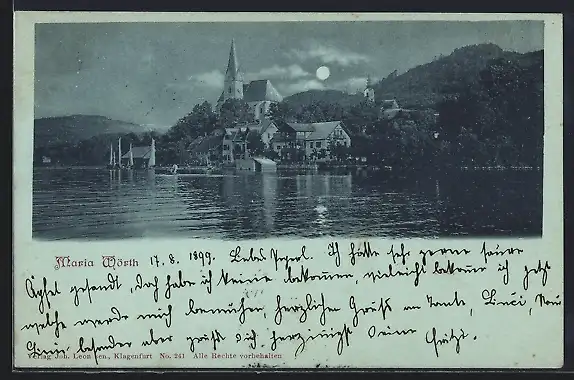 Maria Wörth 17. 8. 1899. Liebes Ich hätte sehr gerne saure
Äpfel gesandt, doch habe ich keine bekommen, vielleicht bekomme ich jetzt
welche werde mich bemühen, herzlichen Gruß an Tante, Linci,
besonders aber grüßt Dich herzinnigst Deine
Verlag Joh. Leon sen., Klagenfurt No. 241 Alle Rechte vorbehalten